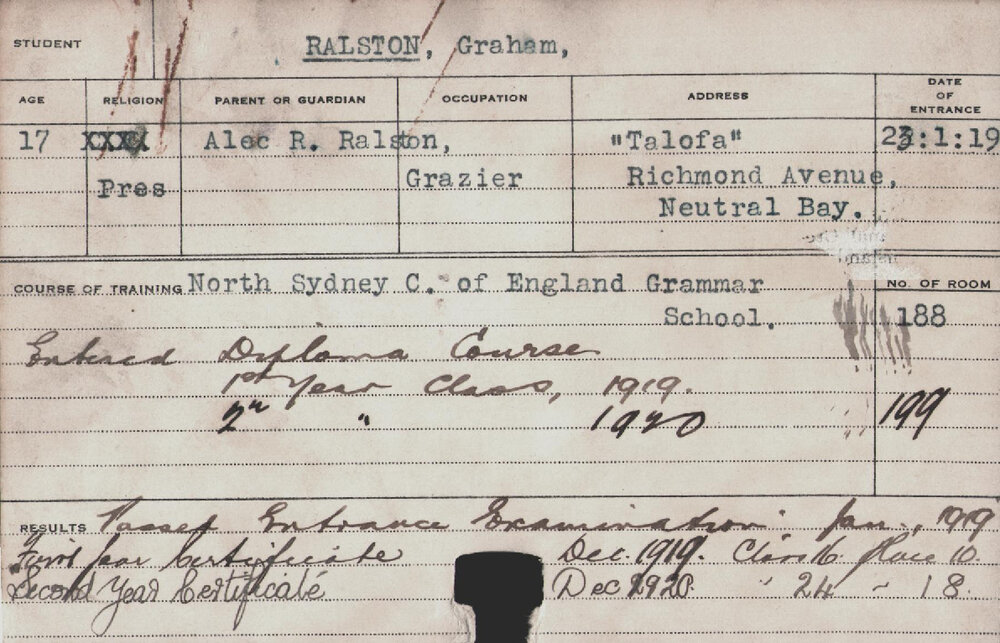 STUDENT RALSTON, Graham,
AGE RELIGION PARENT OR GUARDIAN OCCUPATION ADDRESS DATE OF ENTRANCE
17 XXXX Alec R. Ralston, "Talofa" 23:1:19
Pres Grazier Richmond Avenue,
Neutral Bay.
COURSE OF TRAINING North Sydney C. of England Grammar NO. OF ROOM
School. 188
Entered Diploma Course
1st Year Class, 1919.
2nd " 1920 199
RESULTS Passed Entrance Examination Jan., 1919
First Year Certificate Dec. 1919. Class 16 Place 10.
Second Year Certificate Dec 1920 " 24 - 18.